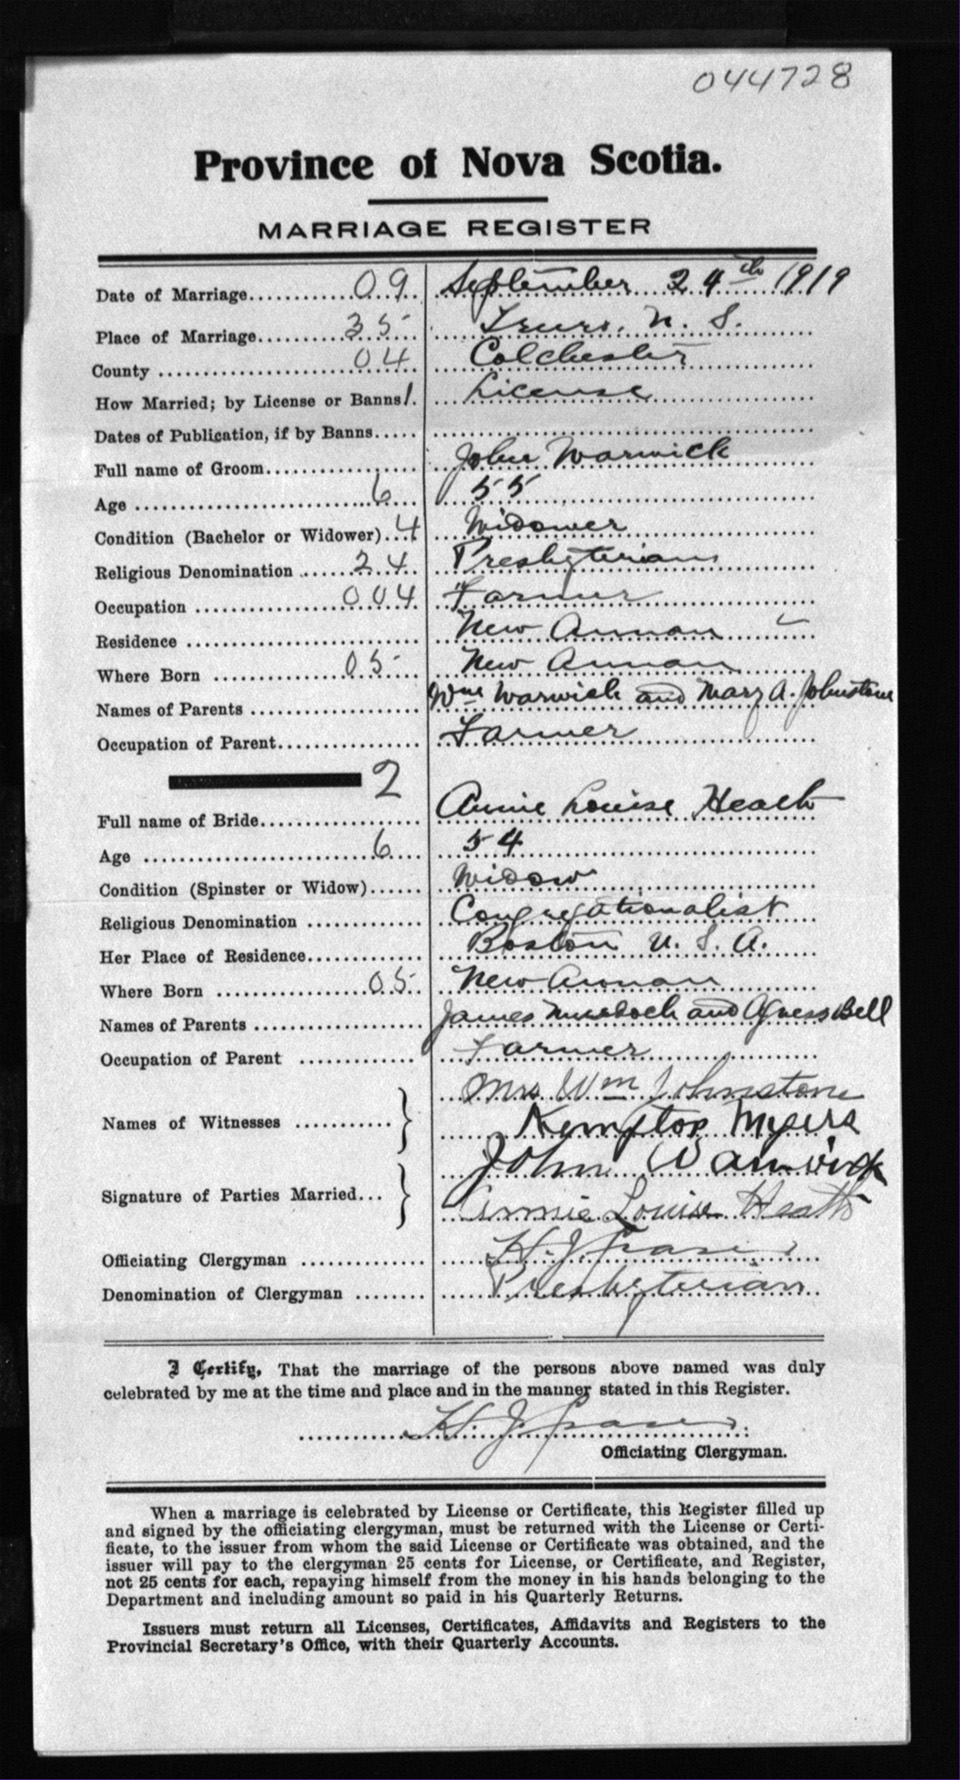 044728
Province of Nova Scotia.
MARRIAGE REGISTER
Date of Marriage 09 September 24th 1919
Place of Marriage 35 Truro, N. S.
County 04 Colchester
How Married; by License or Banns 1. License
Dates of Publication, if by Banns
Full name of Groom John Warwick
Age 6 55
Condition (Bachelor or Widower) 4 Widower
Religious Denomination 24 Presbyterian
Occupation 004 Farmer
Residence New Annan
Where Born 05 New Annan
Names of Parents Wm Warwick and Mary A. Johnstone
Occupation of Parent Farmer
2
Full name of Bride Annie Louise Heath
Age 6 54
Condition (Spinster or Widow) Widow
Religious Denomination Congregationalist
Her Place of Residence Boston U. S. A.
Where Born 05 New Annan
Names of Parents James Murdoch and Agness Bell
Occupation of Parent Farmer
Mrs Wm Johnstone
Names of Witnesses
Kempton Myers
John Warwick
Signature of Parties Married
Annie Louise Heath
Officiating Clergyman H. J. Fraser
Denomination of Clergyman Presbyterian
I Certify, That the marriage of the persons above named was duly
celebrated by me at the time and place and in the manner stated in this Register.
H. J. Fraser
Officiating Clergyman.
When a marriage is celebrated by License or Certificate, this Register filled up
and signed by the officiating clergyman, must be returned with the License or Certi-
ficate, to the issuer from whom the said License or Certificate was obtained, and the
issuer will pay to the clergyman 25 cents for License, or Certificate, and Register,
not 25 cents for each, repaying himself from the money in his hands belonging to the
Department and including amount so paid in his Quarterly Returns.
Issuers must return all Licenses, Certificates, Affidavits and Registers to the
Provincial Secretary's Office, with their Quarterly Accounts.